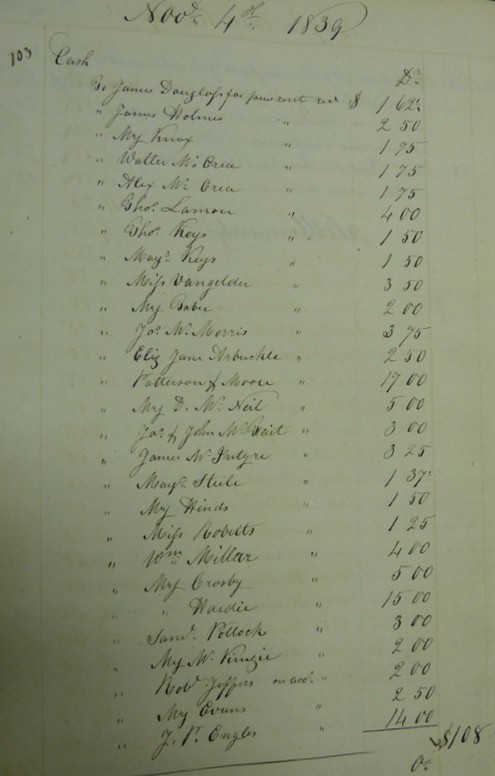 Novr. 4th. 1839
103 Cash Dr.
To James Douglass for pew rent recd $ 1 62½
" James Holmes " 2 50
" Mrs Knox 1 75
" Walter Mc Crea " 1 75
" Alex Mc Crea " 1 75
" Thos. Lamon " 4 00
" Thos. Keys " 1 50
" Margt. Keys " 1 50
" Miss Vangelder " 3 50
" Mrs 2 00
" Jas. Mc Morris " 3 75
" Eliz Jane Arbuckle " 2 50
" Patterson & Moore " 17 00
" Mrs D. Mc Neil " 5 00
" Jas & John Mc " 3 00
" James Mc 3 25
" Margt. Steele " 1 37½
" Mrs Hinds " 1 50
" Miss Roberts " 1 25
" Wm Millar " 4 00
" Mrs Crosby 5 00
" " Hardie " 15 00
" Saml. Pollock " 3 00
" Mrs Mc Kinzie " 2 00
" Robt. Jeffers on acct. " 2 00
" Mrs Evans " 2 50
" J. P. Engles " 14 00
$108